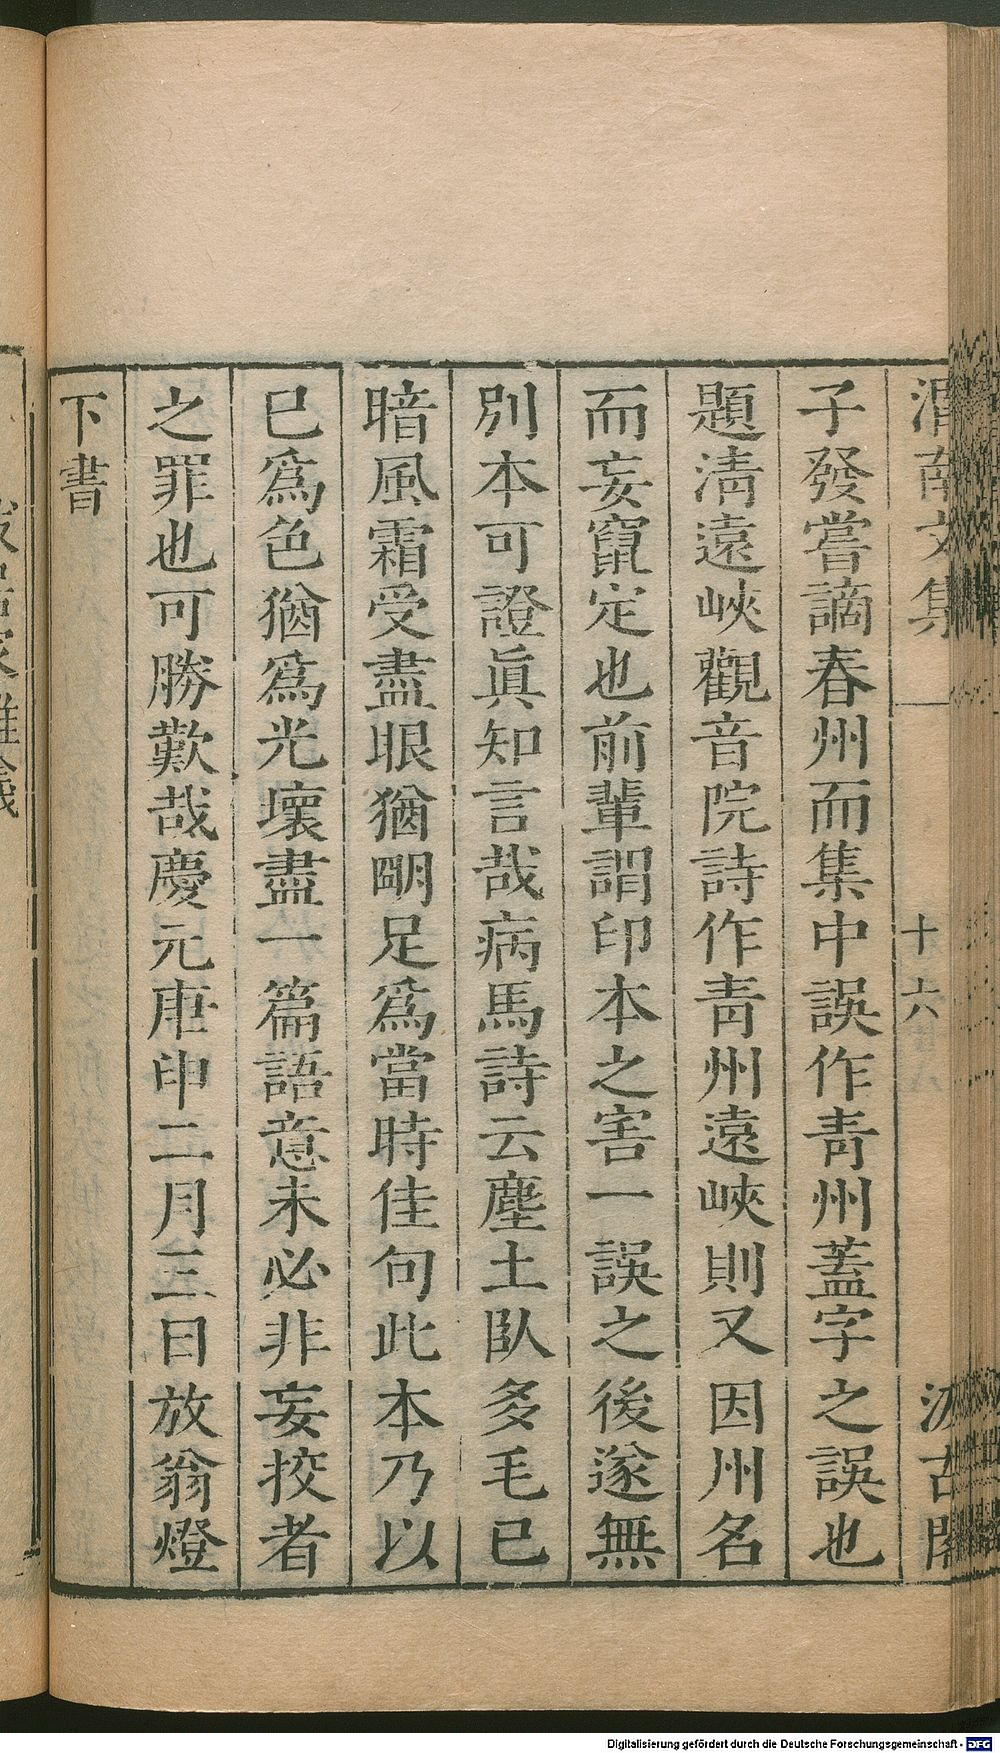 渭南文集
十六
汲古閣
子發嘗謫春州而集中誤作靑州蓋字之誤也
題淸遠峽觀音院詩作靑州遠峽則又因州名
而妄竄定也前輩謂印本之害一誤之後遂無
別本可證眞知言哉病馬詩云塵土臥多毛已
暗風霜受盡眼猶明足爲當時佳句此本乃以
已爲色猶爲光壞盡一篇語意未必非妄挍者
之罪也可勝歎哉慶元庚申二月三日放翁燈
下書
Digitalisierung gefördert durch die Deutsche Forschungsgemeinschaft - DFG